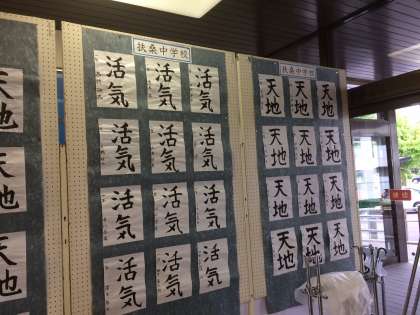 天地
天地
天地
扶桑中学校
活気
活気
活気
活気
活気
活気
活気
活気
活気
活気
活気
活気
扶桑中学校
天地
天地
天地
天地
天地
天地
天地
天地
天地
天地
天地
天地